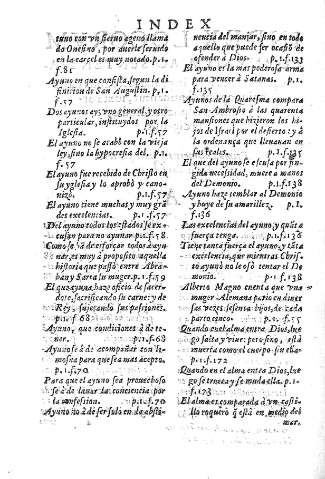 INDEX
tuno con vn sieruo ageno llama
do Onesino, por auerle seruido
en la carcel es muy notado. p.1.
f.81
Ayuno en que consista, segun la di
finicion de San Augustin. p.1.
f.57
Dos ayunos ay, vno general, y otro
particular, instituydo por la
Iglesia. p.1.f.57
El ayuno no se acabò con la vieja
ley, sino la hypocresia del. p.1.
f.57
El ayuno fue recebido de Christo en
su yglesia y lo aprobò y cano-
nizò. p.1.f.57
El ayuno tiene muchas y muy grã
des excelencias. p.1.f.57
Del ayuno todos los estados se ex-
cusan para no ayunar p.1.f.58
Como se hà de esforçar todos à ayu
nar, es muy à proposito aquella
historia que passò entre Abra-
han y Sarra su muger. p.1.f.59
El que ayuna, haze oficio de sacer-
dote, sacrificando su carne: y de
Rey, sujetando sus passiones.
p.1.f.68
Ayuno, que condiciones à de te-
ner. p.1.f.68
Ayuno se à de acompañar con li-
mosna para que sea mas acepto.
p.1.f.70
Para que el ayuno sea prouechoso
se à de lauar la conciencia por
la confession. p.1.f.70
Ayuno no à de ser solo en la absti-
nencia del manjar, sino en todo
aquello que puede ser ocasiõ de
ofender à Dios. p.1.f.133
El ayuno es la mas poderosa arma
para vencer à Satanas. p.1.
f.135
Ayunos de la Quaresma compara
San Ambrosio à las quarenta
mansiones que hizieron los hi-
jos de Israel por el desierto: y à
la ordenança que lleuauan en
sus reales. p.1.f.135
El que del ayuno se escusa por fin-
gida necessidad, muere à manos
del Demonio. p.1.f.138
Ayuno haze temblar al Demonio
y hoye de su amarillez. p.1.
f.136
Las excelencias del ayuno, y quita
fuerça tenga. p.1.f.138
Tiene tanta fuerça el ayuno, y tãta
excelencia, que mientras Chris-
to ayunò no le osò tentar el De
monio. p.1.f.138
Alberto Magno cuenta que vna
muger Alemana pario en diuer
sas vezes, sesenta hijos, de cada
parto cinco. p.1.f.55
Quando en el alma entra Dios, lue
go salta y viue: pero sin el, està
muerta como el cuerpo sin ella.
p.1.f.172
Quando en el alma entra Dios, lue
go se trueca y se muda ella. p.1.
f.173
El alma es comparada à vn casti-
llo roquero q̃ està en medio del
mar.